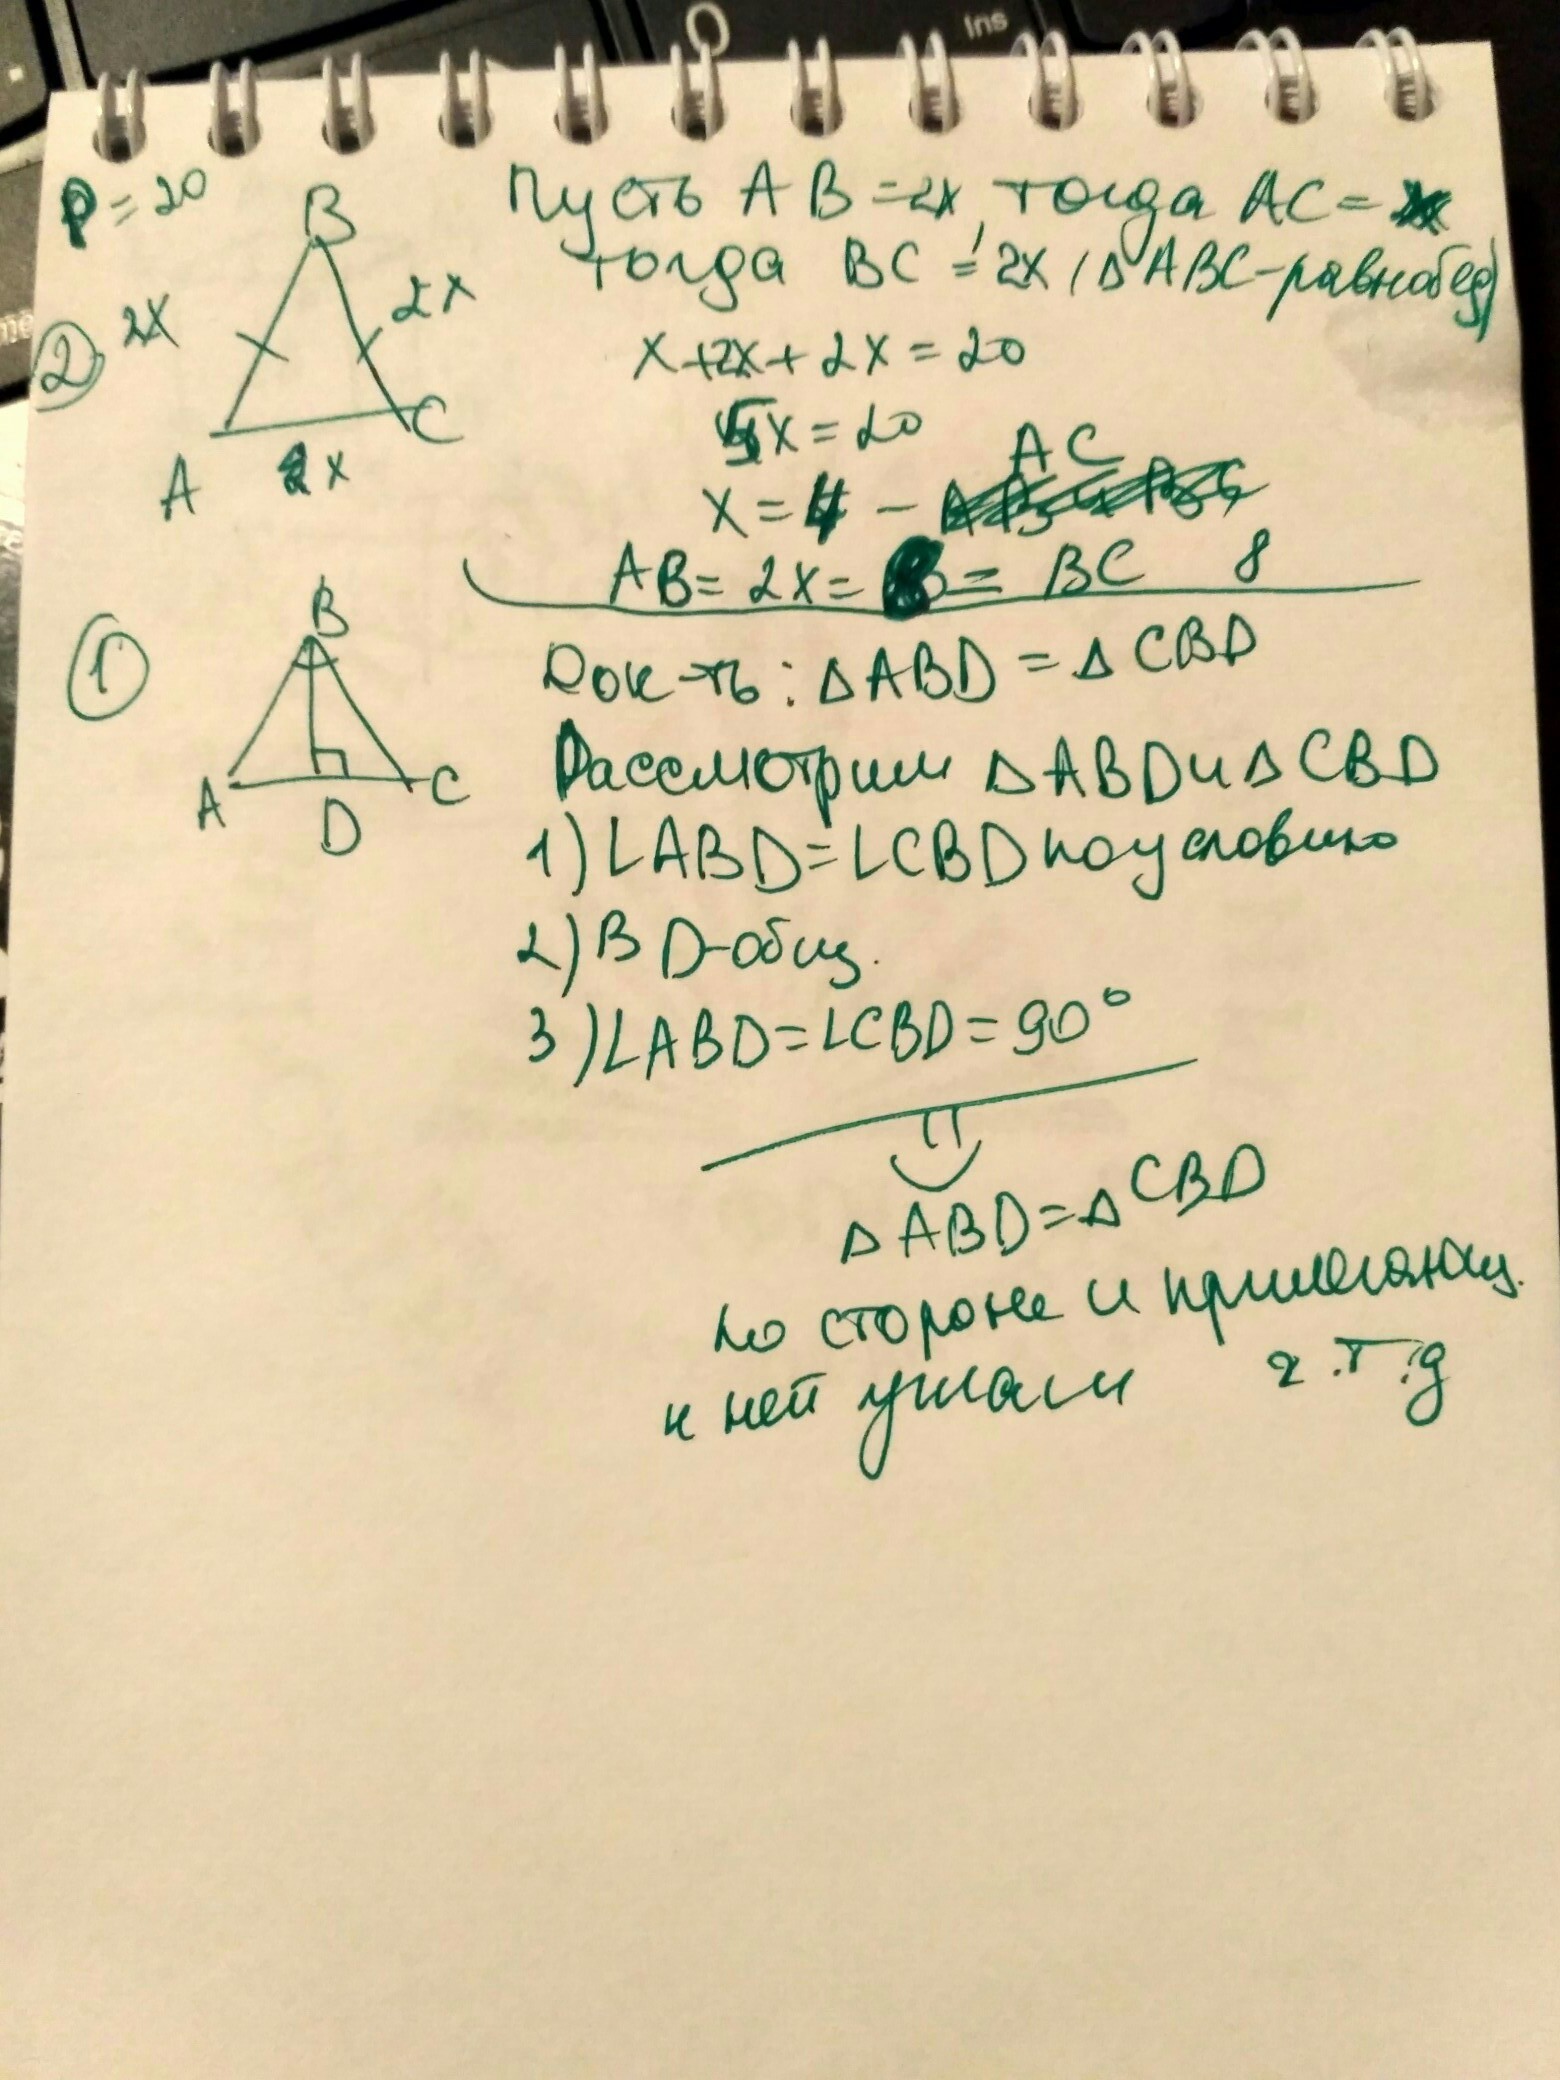 Ins
P = 20
Пусть AB = 2x, тогда AC = x
тогда BC = 2x (Δ ABC - равнобед)
②
B
2x
2x
A
C
2x
x + 2x + 2x = 20
5x = 20
x = 4 - AC
AB = 2x = 8 = BC 8
①
B
A
C
D
Док-ть: Δ ABD = Δ CBD
Рассмотрим Δ ABD и Δ CBD
1) ∠ABD = ∠CBD по условию
2) BD - общ.
3) ∠ABD = ∠CBD = 90°
Δ ABD = Δ CBD
по стороне и прилегающ.
к ней углам ч.т.д